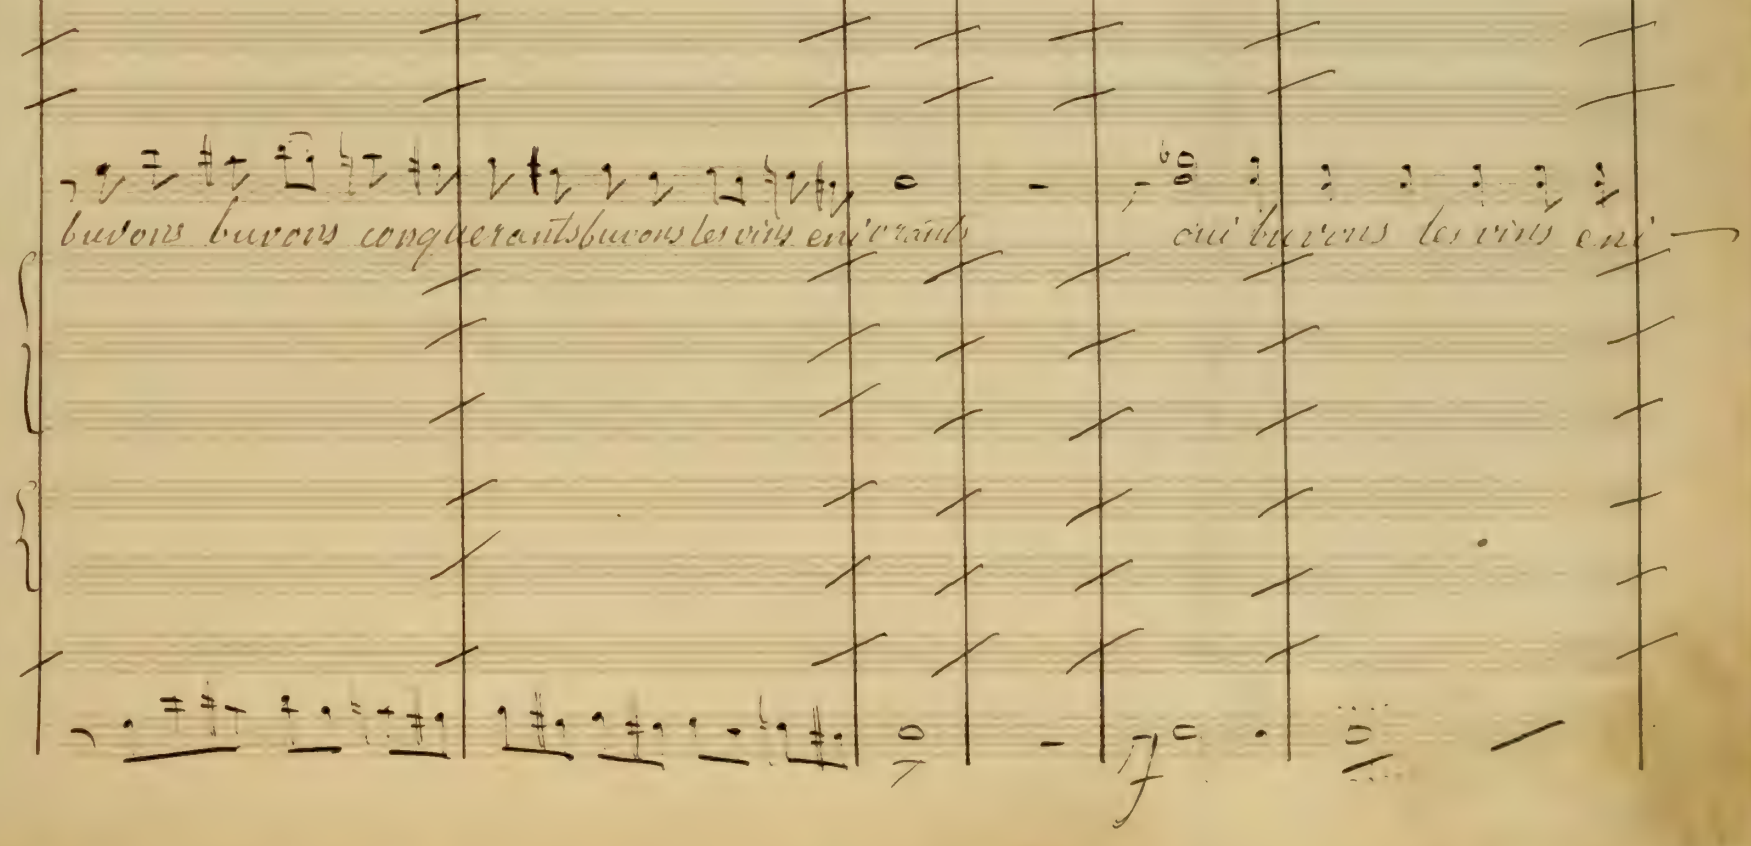 buvons buvons conquerants buvons les vins enivrants oui buvons les vins eni
f